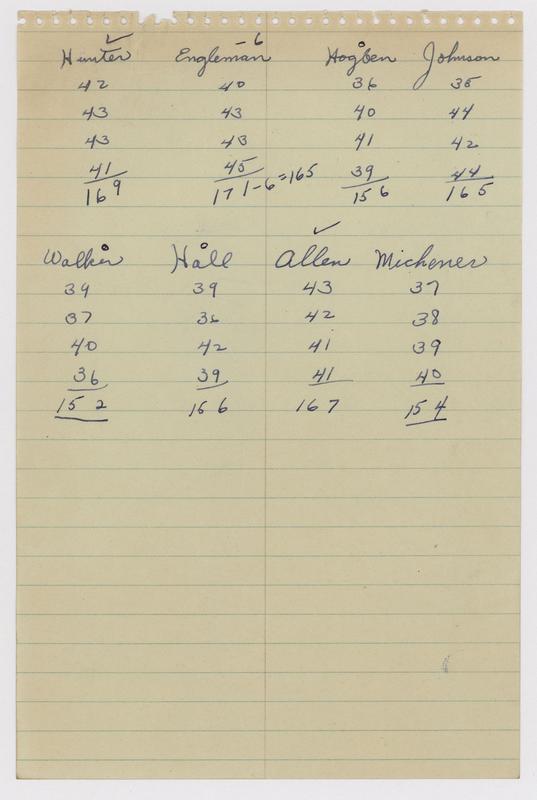 ✓ - 6
Hunter Engleman Hogben Johnson
42 40 36 35
43 43 40 44
43 43 41 42
41 45 39 44
169 171-6=165 156 165
✓
Walker Hall Allen Michener
39 39 43 37
37 36 42 38
40 42 41 39
36 39 41 40
152 156 167 154